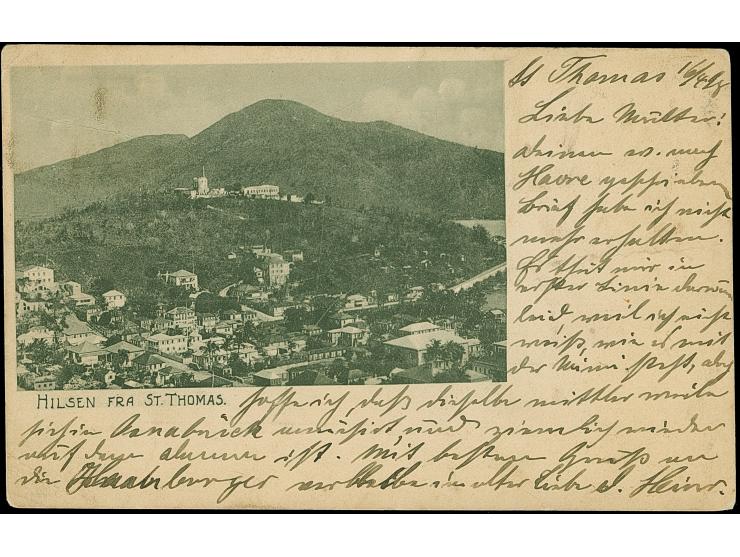 St Thomas 16/4 98
Liebe Mutter!
deinen ev. nach
Havre geschriebenen
Brief habe ich nicht
mehr erhalten.
Es thut mir in
erster Linie darum
leid weil ich nicht
weiß, wie es mit
der Mimi steht, aber
HILSEN FRA ST. THOMAS.
hoffe ich, daß dieselbe mittler weile
sich in Osnabrück und ziemlich wieder
auf dem ist. Mit besten Gruß an
die verbleibe in alter Liebe d. Heinr.